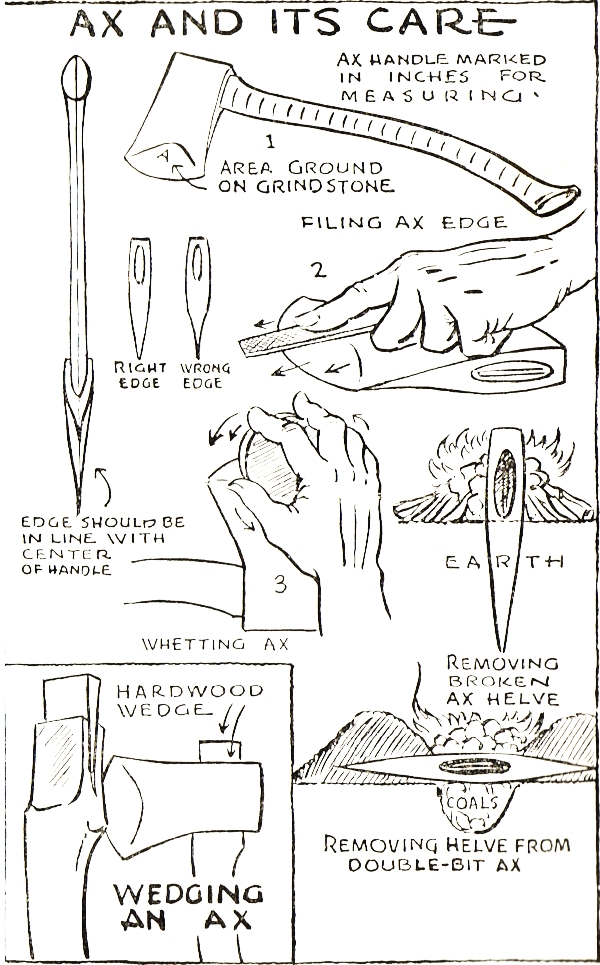 AX AND ITS CARE
AX HANDLE MARKED
IN INCHES FOR
MEASURING.
1
A
AREA GROUND
ON GRINDSTONE
FILING AX EDGE
2
RIGHT
EDGE
WRONG
EDGE
EDGE SHOULD BE
IN LINE WITH
CENTER
OF HANDLE
3
WHETTING AX
EARTH
REMOVING
BROKEN
AX HELVE
HARDWOOD
WEDGE
WEDGING
AN AX
COALS
REMOVING HELVE FROM
DOUBLE-BIT AX